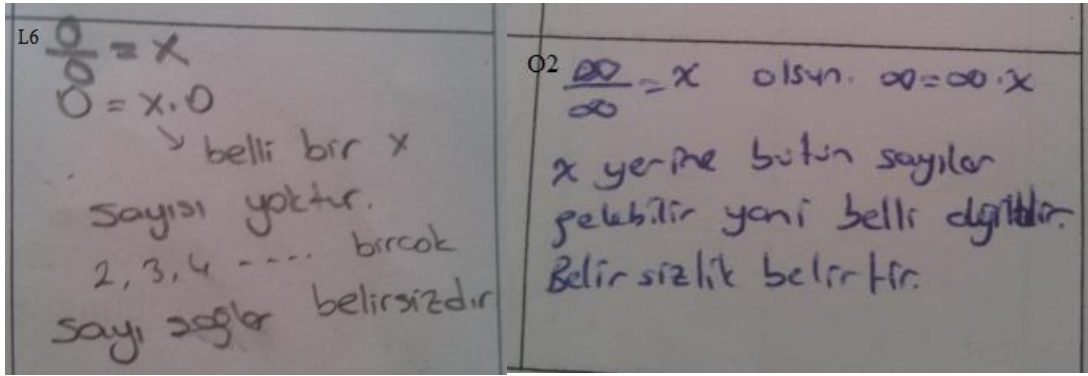 L6
0/0 = x
0 = x.0
↘ belli bir x
sayısı yoktur.
2, 3, 4 ---- bircok
sayı sağlar belirsizdır
O2
∞/∞ = x olsun. ∞=∞.x
x yerine bütün sayılar
gelebilir yani belli değildir.
Belirsizlik belirtir.